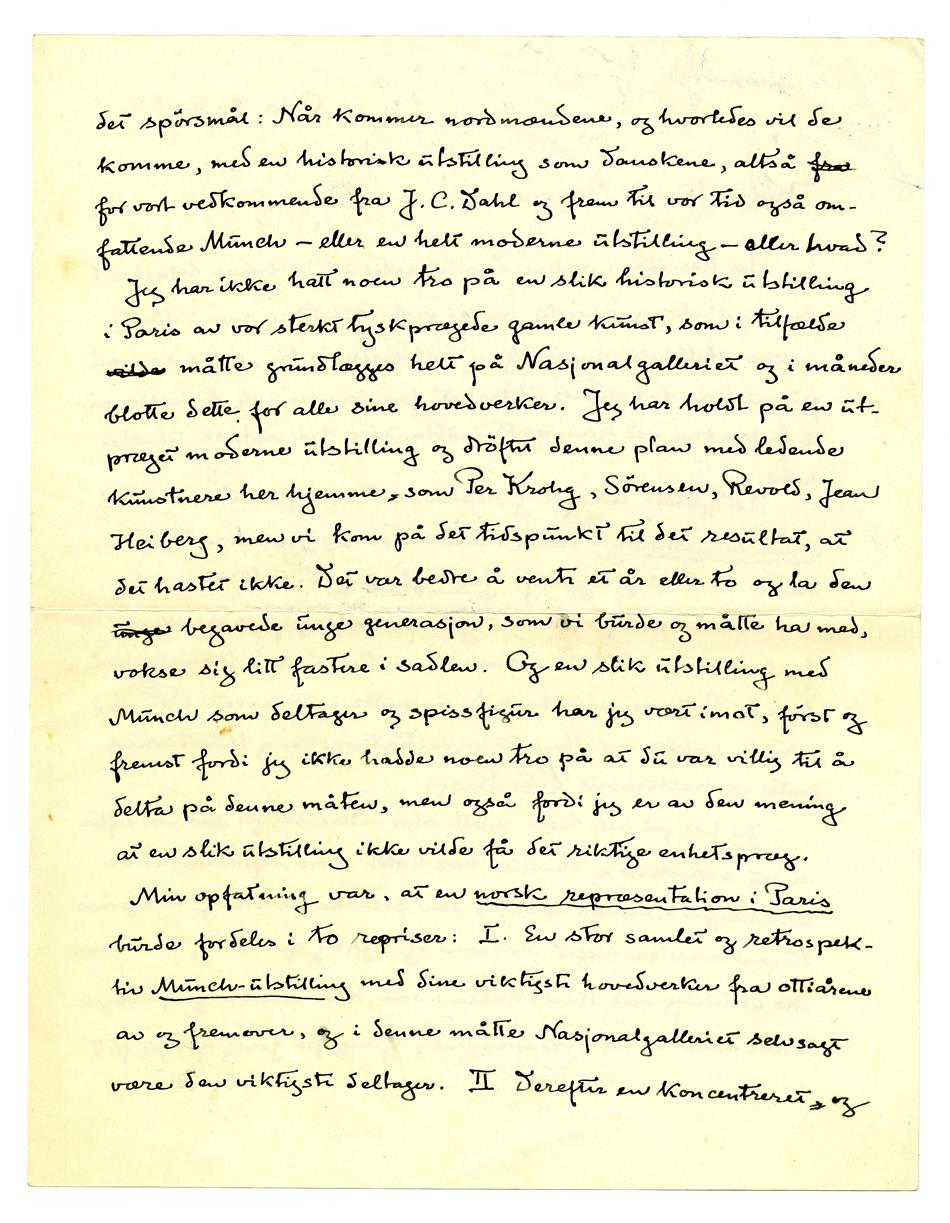 det spörsmål: Når kommer nordmændene, og hvorledes vil de
komme, med en historisk utstilling som danskene, altså fra
for vort vedkommende fra J. C. Dahl og frem til vor tid også om-
fattende Munch – eller en helt moderne utstilling – eller hvad?
Jeg har ikke hatt noen tro på en slik historisk utstilling
i Paris av vor sterkt tyskprægede gamle kunst, som i tilfælde
vilde måtte grundlægges helt på Nasjonalgalleriet og i måneder
blotte dette for alle sine hovedverker. Jeg har holdt på en ut-
præget moderne utstilling og dröftet denne plan med ledende
kunstnere her hjemme, som Per Krohg, Sörensen, Revold, Jean
Heiberg, men vi kom på det tidspunkt til det resultat, at
det hastet ikke. Det var bedre å vente et år eller to og la den
unge begavede unge generasjon, som vi burde og måtte ha med,
vokse sig litt fastere i sadlen. Og en slik utstilling med
Munch som deltager og spissfigur har jeg vært imot, först og
fremst fordi jeg ikke hadde noen tro på at du var villig til å
delta på denne måten, men også fordi jeg er av den mening
at en slik utstilling ikke vilde få det riktige enhetspræg.
Min opfatning var, at en norsk repræsentation i Paris
burde fordeles i to repriser: I. En stor samlet og retrospek-
tiv Munch-utstilling med dine viktigste hovedverker fra ottiårene
av og fremover, og i denne måtte Nasjonalgalleriet selvsagt
være den viktigste deltager. II Derefter en koncentreret, og